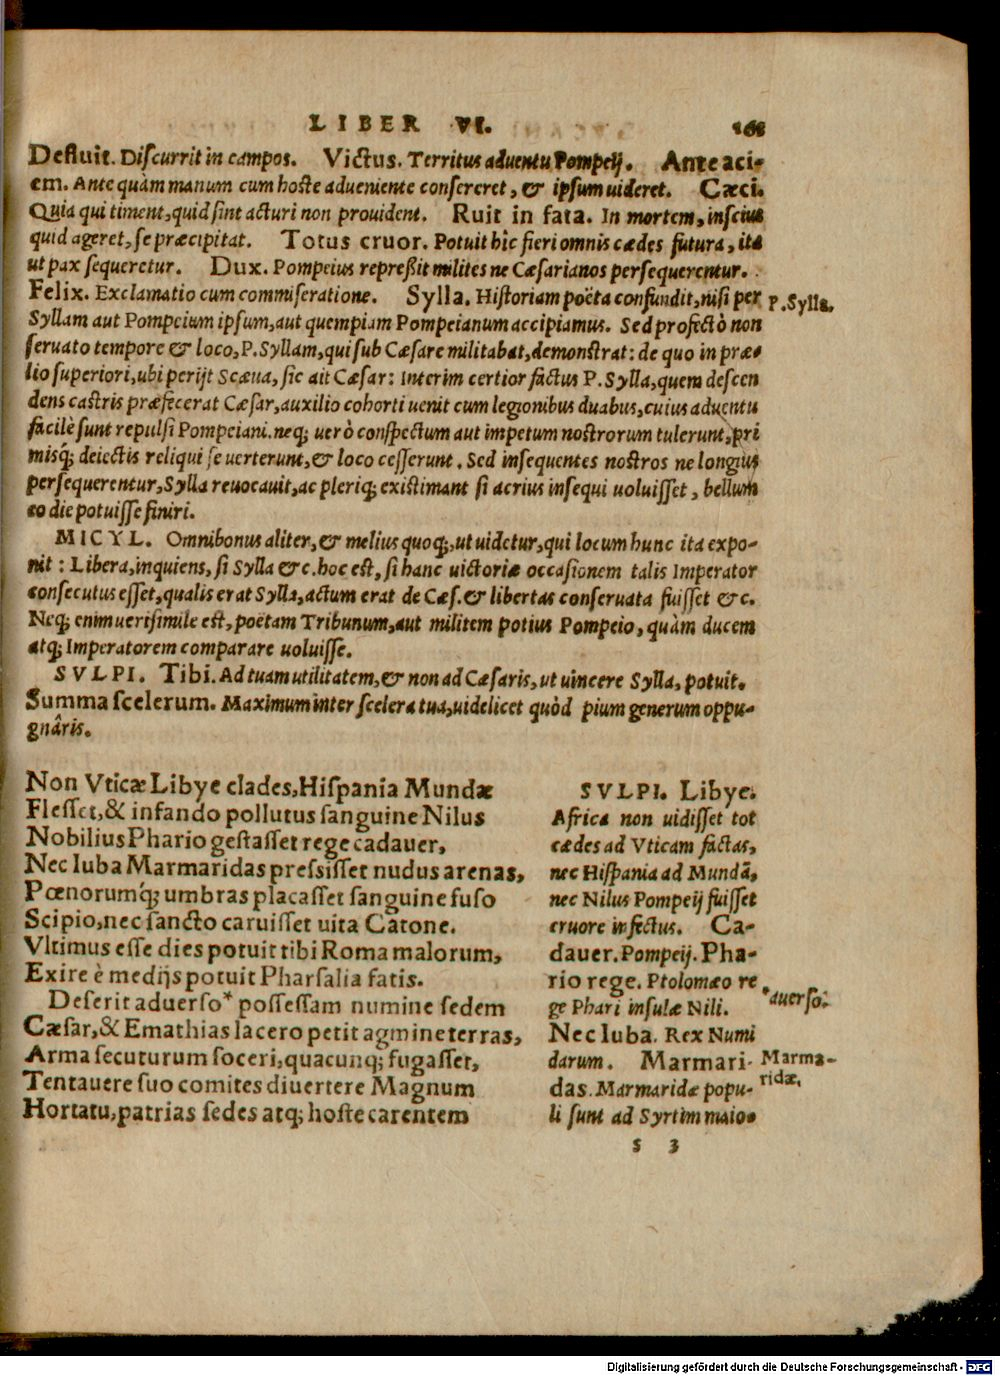 LIBER VI.
Defluit. Discurrit in campos. Victus. Territus aduentu Pompeij. Ante aci-
em. Ante quàm manum cum hoste adueniente consereret, & ipsum uideret. Cæci.
Quia qui timent, quid sint acturi non prouident. Ruit in fata. In mortem, inscius
quid ageret, se præcipitat. Totus cruor. Potuit hîc fieri omnis cædes futura, ita
ut pax sequeretur. Dux. Pompeius repreßit milites ne Cæsarianos persequerentur.
Felix. Exclamatio cum commiseratione. Sylla. Historiam poëta confundit, nisi per
P. Sylla.
Syllam aut Pompeium ipsum, aut quempiam Pompeianum accipiamus. Sed profectò non
seruato tempore & loco, P. Syllam, qui sub Cæsare militabat, demonstrat: de quo in præ-
lio superiori, ubi perijt Scæua, sic ait Cæsar: Interim certior factus P. Sylla, quem descen
dens castris præfecerat Cæsar, auxilio cohorti uenit cum legionibus duabus, cuius aduentu
facilè sunt repulsi Pompeiani. neq; uerò conspectum aut impetum nostrorum tulerunt, pri
misq́; deiectis reliqui se uerterunt, & loco cesserunt. Sed insequentes nostros ne longius
persequerentur, Sylla reuocauit, ac pleriq; existimant si acrius insequi uoluisset, bellum
eo die potuisse finiri.
MICYL. Omnibonus aliter, & melius quoq;, ut uidetur, qui locum hunc ita expo-
nit: Libera, inquiens, si Sylla &c. hoc est, si hanc uictoriæ occasionem talis Imperator
consecutus esset, qualis erat Sylla, actum erat de Cæs. & libertas conseruata fuisset &c.
Neq; enim uerisimile est, poëtam Tribunum, aut militem potius Pompeio, quàm ducem
atq; Imperatorem comparare uoluisse.
SVLPI. Tibi. Ad tuam utilitatem, & non ad Cæsaris, ut uincere Sylla, potuit.
Summa scelerum. Maximum inter scelera tua, uidelicet quòd pium generum oppu-
gnâris.
Non Vticæ Libye clades, Hispania Mundæ
Flesset, & infando pollutus sanguine Nilus
Nobilius Phario gestasset rege cadauer,
Nec Iuba Marmaridas pressisset nudus arenas,
Pœnorumq́; umbras placasset sanguine fuso
Scipio, nec sancto caruisset uita Catone.
Vltimus esse dies potuit tibi Roma malorum,
Exire è medijs potuit Pharsalia fatis.
Deserit aduerso* possessam numine sedem
Cæsar, & Emathias lacero petit agmine terras,
Arma secuturum soceri, quacunq; fugasset,
Tentauere suo comites diuertere Magnum
Hortatu, patrias sedes atq; hoste carentem
SVLPI. Libye.
Africa non uidisset tot
cædes ad Vticam factas,
nec Hispania ad Mundā,
nec Nilus Pompeij fuisset
cruore infectus. Ca-
dauer. Pompeij. Pha-
rio rege. Ptolomæo re
ge Phari insulæ Nili.
Nec Iuba. Rex Numi
darum. Marmari-
das. Marmaridæ popu-
li sunt ad Syrtim maio-
auerso.
Marma-
ridæ.
s 3
Digitalisierung gefördert durch die Deutsche Forschungsgemeinschaft - DFG